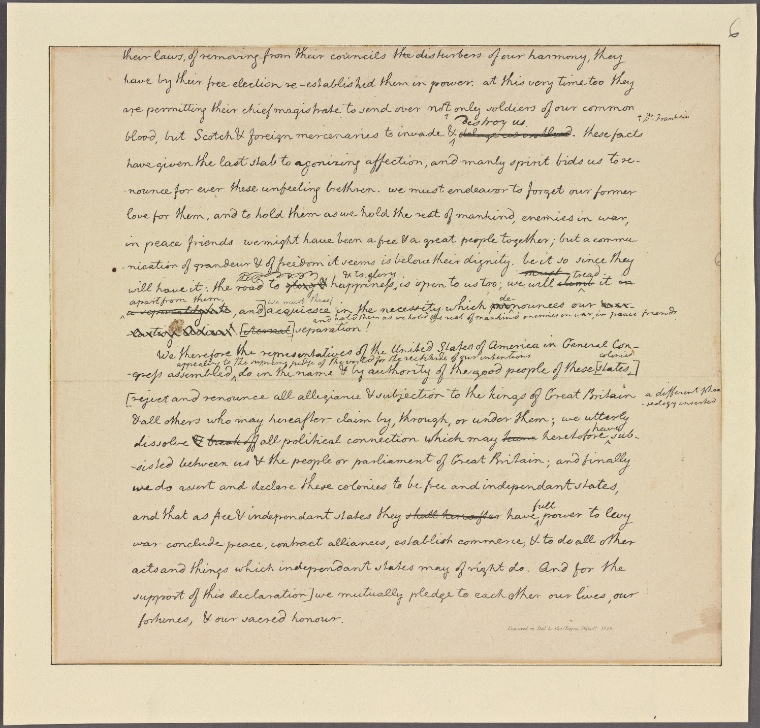 6
their laws, of removing from their councils the disturbers of our harmony, they
have by their free election re-established them in power. at this very time too they
are permitting their chief magistrate to send over not only soldiers of our common
destroy us
* Dr. Franklin
blood, but Scotch & foreign mercenaries to invade & deluge us in blood. these facts
have given the last stab to agonizing affection, and manly spirit bids us to re-
nounce for ever these unfeeling brethren. we must endeavor to forget our former
love for them, and to hold them as we hold the rest of mankind, enemies in war,
in peace friends we might have been a free & a great people together; but a commu
nication of grandeur & of freedom it seems is below their dignity. be it so since they
& to glory
must tread
will have it: the road to glory & happiness, is open to us too; we will climb it in
apart from them,
we must
de-
a separately state, and] acquiesce in the necessity which pronounces our
and hold them as we hold the rest of mankind enemies in war, in peace friends
[eternal] separation!
We therefore the representatives of the United States of America in General Con-
appealing to the supreme judge of the world for the rectitude of our intentions
colonies
-gress assembled, do in the name & by authority of the good people of these [states,]
[reject and renounce all allegiance & subjection to the kings of Great Britain
a different phra
-seology inserted
& all others who may hereafter claim by, through, or under them; we utterly
have
dissolve & break off all political connection which may have heretofore sub-
sisted between us & the people or parliament of Great Britain; and finally
we do assert and declare these colonies to be free and independant states,
full
and that as free & independant states they shall hereafter have power to levy
war conclude peace, contract alliances, establish commerce, & to do all other
acts and things which independant states may of right do. And for the
support of this declaration] we mutually pledge to each other our lives, our
fortunes, & our sacred honour.